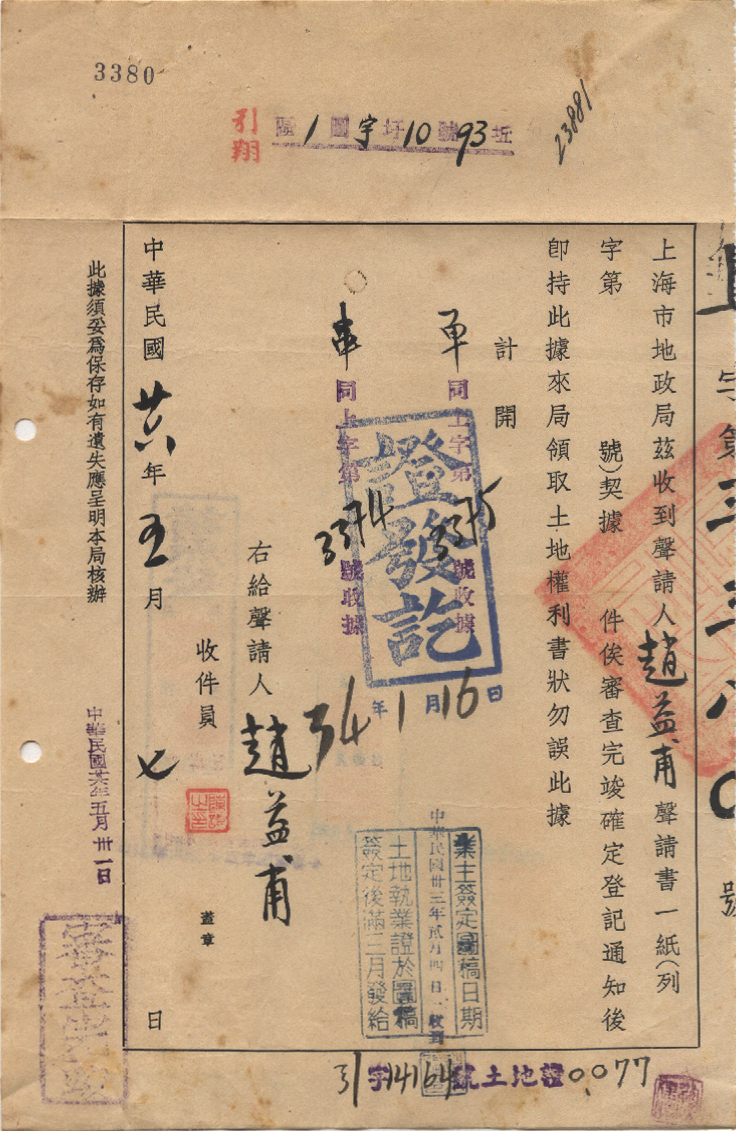 3380
引翔
區 1 圖 字 圩 10 號 93 坵
23881
上海市地政局茲收到聲請人趙益甫聲請書一紙(列
字第 號)契據 件俟審查完竣確定登記通知後
即持此據來局領取土地權利書狀勿誤此據
計開
同上字第3375號收據
同上字第3374號收據
證發訖
34年1月16日
右給聲請人 趙益甫
收件員
蓋章
中華民國廿六年五月 七 日
此據須妥爲保存如有遺失應呈明本局核辦
中華民國廿六年五月廿一日
業主簽定圖稿日期
中華民國卅三年貳月四日收到
土地執業證於圖稿
簽定後滿三月發給
引字14164號土地證0077